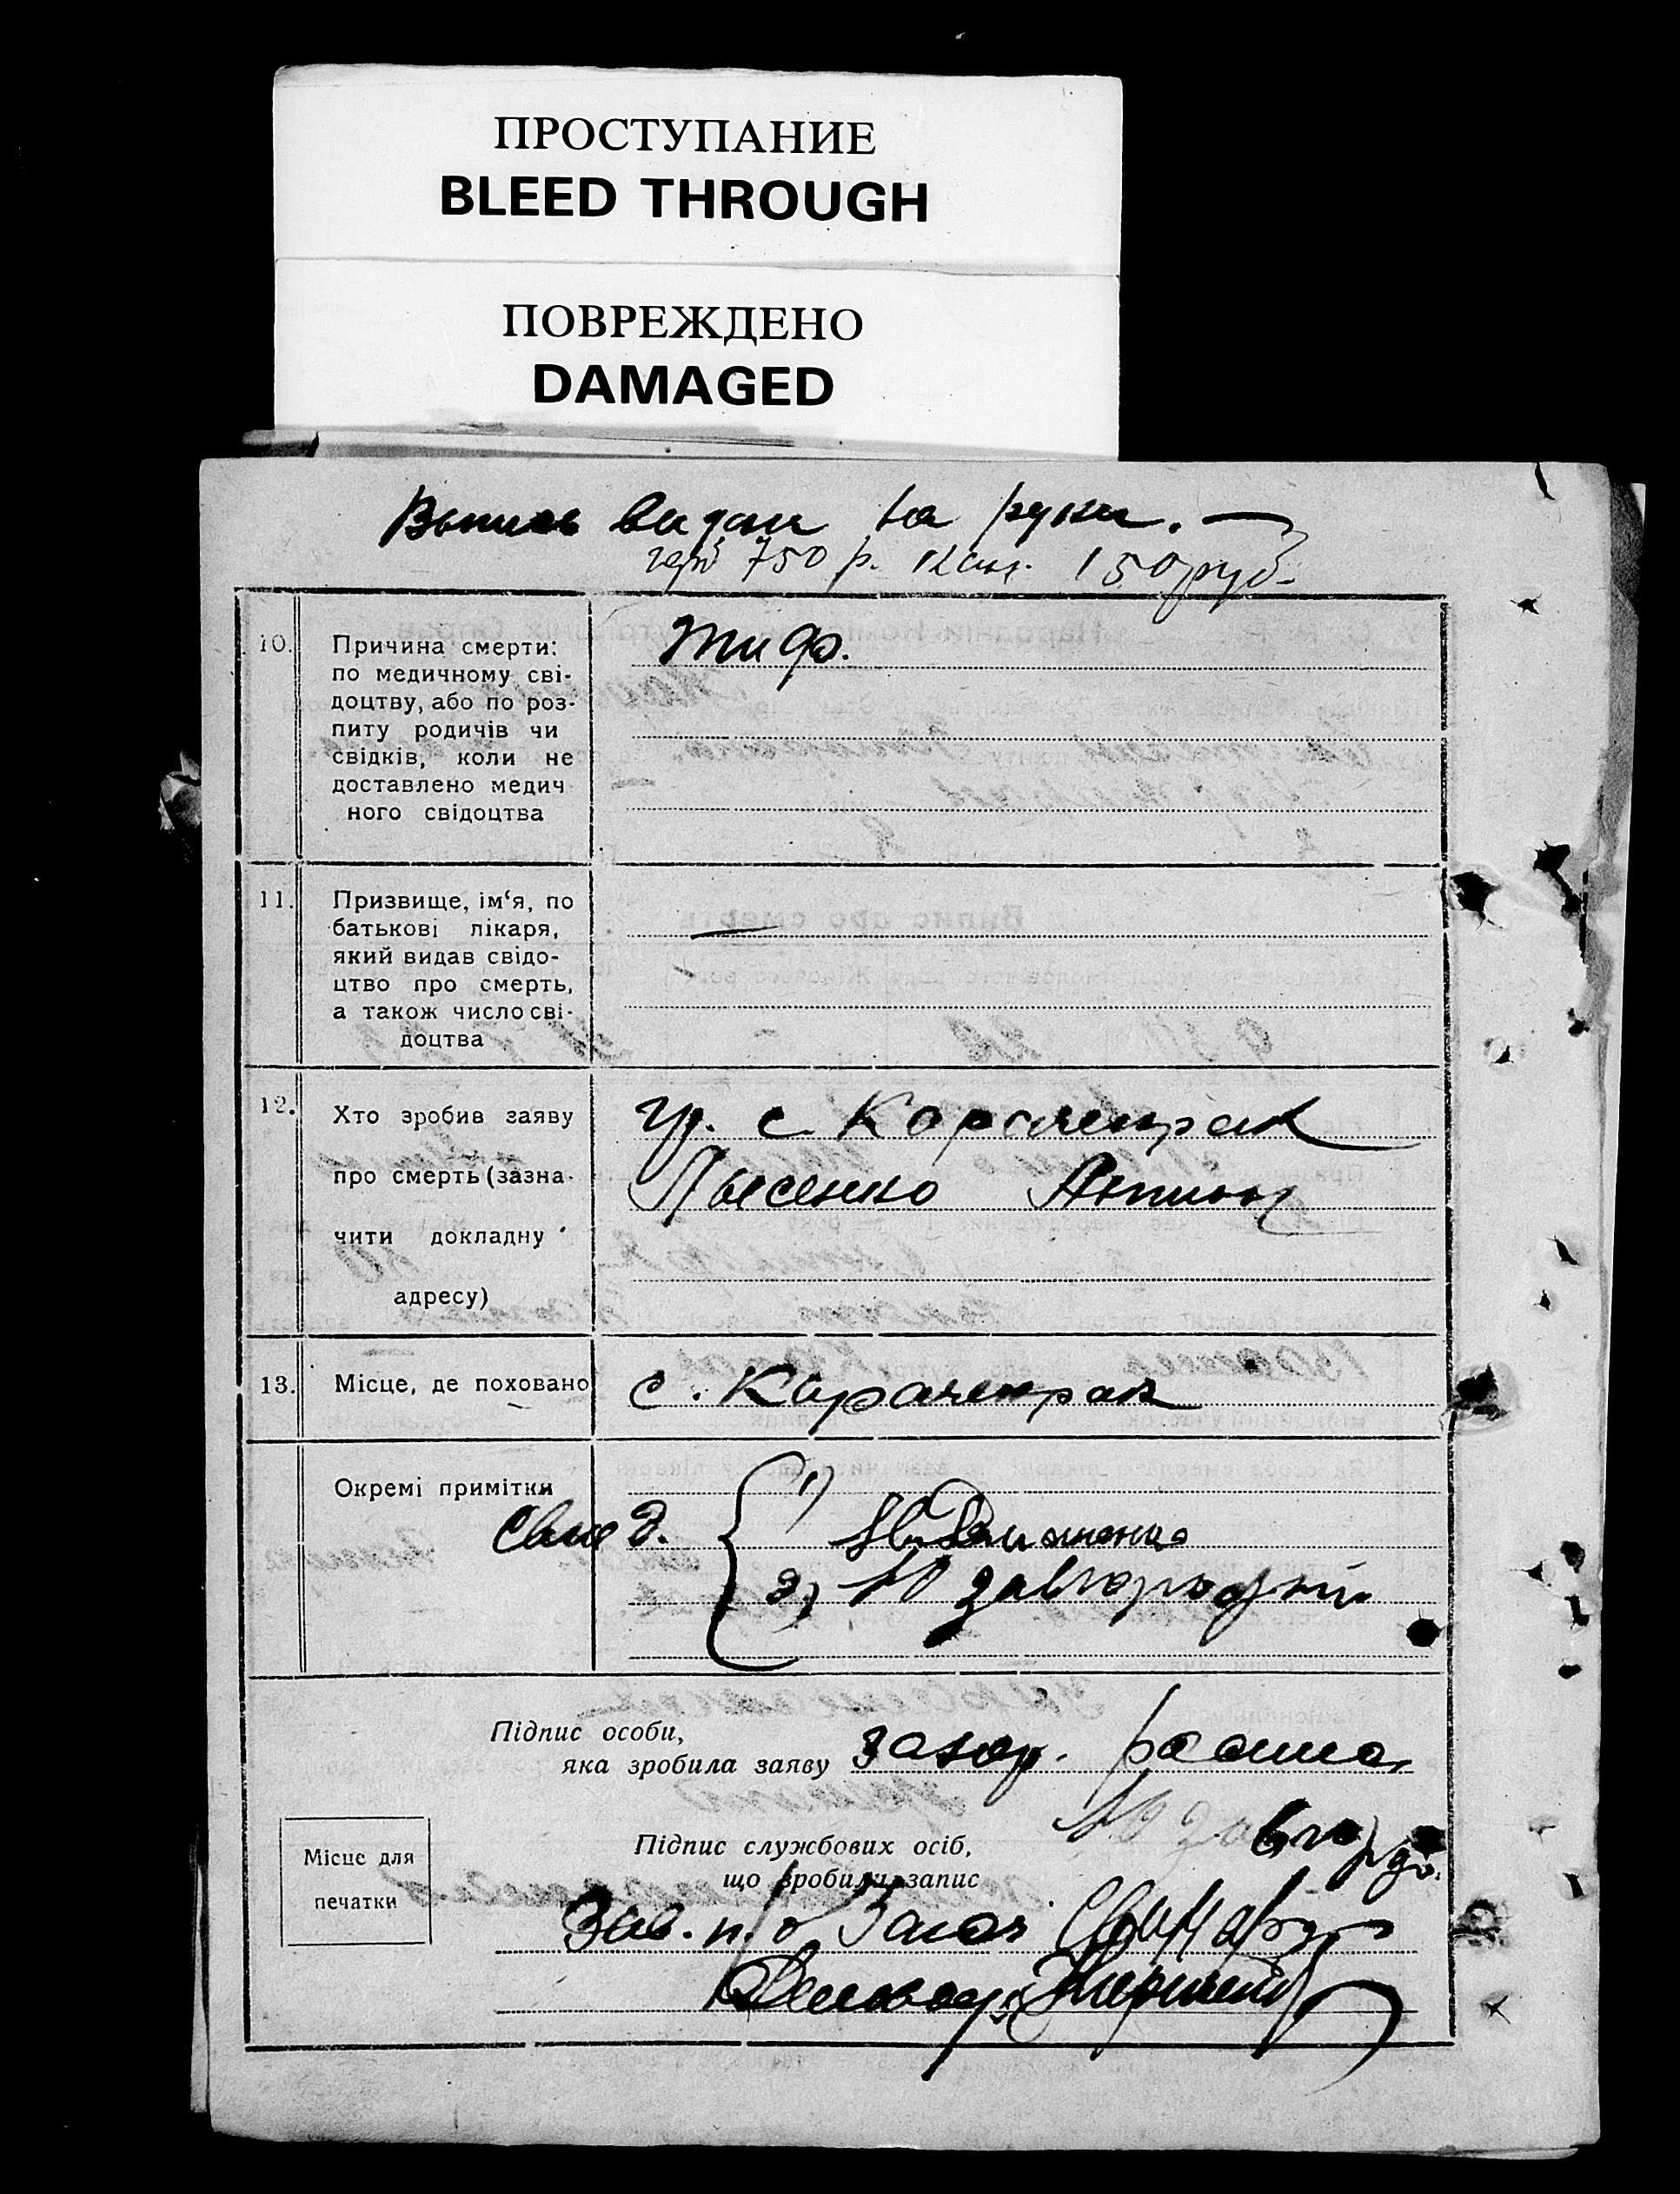 ПРОСТУПАНИЕ
BLEED THROUGH
ПОВРЕЖДЕНО
DAMAGED
Выпись видан на руки. —
герб 750 р. Канц. 150 руб-
10. Причина смерти:
по медичному сві-
доцтву, або по роз-
питу родичів чи
свідків, коли не
доставлено медич
ного свідоцтва
тиф.
11. Призвище, ім‘я, по
батькові лікаря,
який видав свідо-
цтво про смерть,
а також число сві-
доцтва
—
12. Хто зробив заяву
про смерть (зазна-
чити докладну
адресу)
гр. с Карачекрак
Лысенко Антин
13. Місце, де поховано
с. Карачекрак
Окремі примітки
Свид. 1)
2) Ю Завгородний
Підпис особи,
яка зробила заяву
Місце для
печатки
Підпис службових осіб,
що зробили запис
Зав. п/о Загса
Деловод.